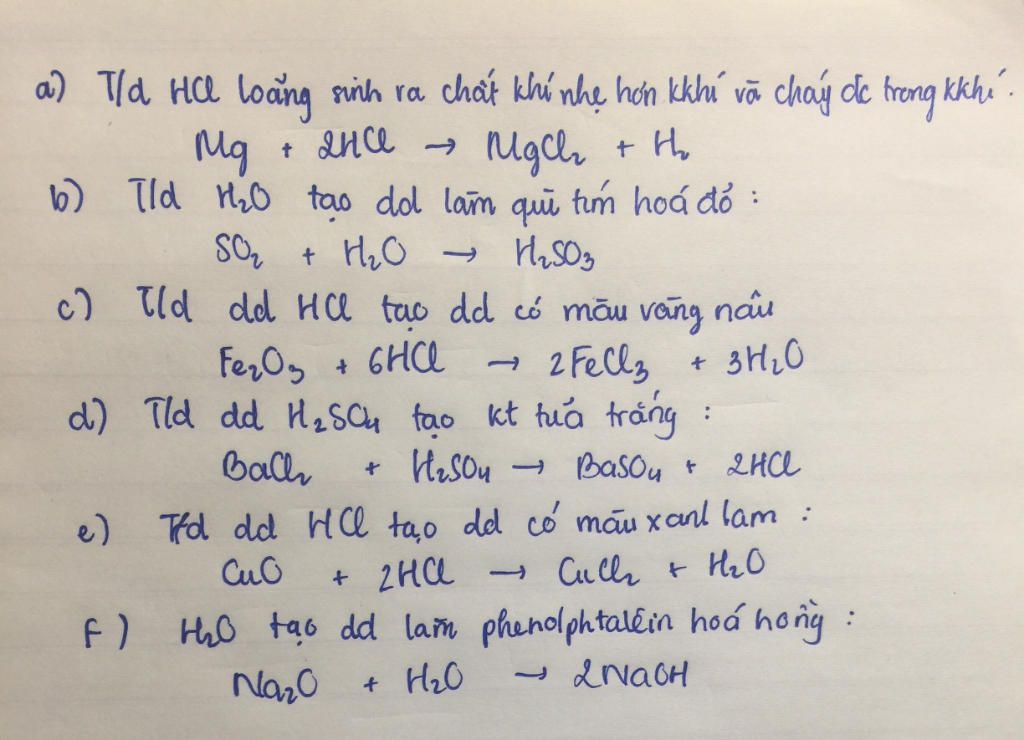 a) T/d HCl loãng sinh ra chất khí nhẹ hơn kkhí và cháy đc trong kkhí.
Mg + 2HCl → MgCl₂ + H₂
b) T/d H₂O tạo dd làm quì tím hoá đỏ :
SO₂ + H₂O → H₂SO₃
c) T/d dd HCl tạo dd có màu vàng nâu
Fe₂O₃ + 6HCl → 2FeCl₃ + 3H₂O
d) T/d dd H₂SO₄ tạo kt tuả trắng :
BaCl₂ + H₂SO₄ → BaSO₄ + 2HCl
e) T/d dd HCl tạo dd có màu xanl lam :
CuO + 2HCl → CuCl₂ + H₂O
f) H₂O tạo dd làm phenolphtalêin hoá hồng :
Na₂O + H₂O → 2NaOH